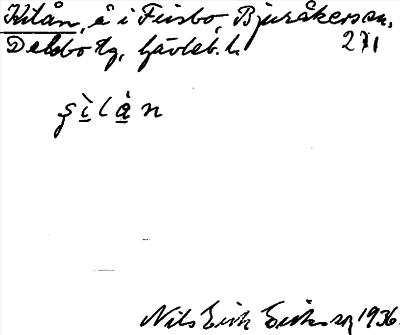 Kilån, å i Furbo, Bjuråkers sn.
Delsbo tg, Gävleb. l.
271
şìlån
Nils Erik Eriksson 1936.